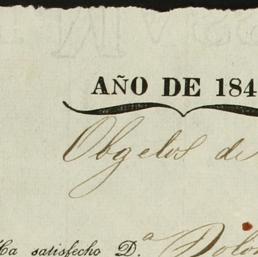 AÑO DE 184
Obgetos de
Ha satisfecho D.ª Dolo